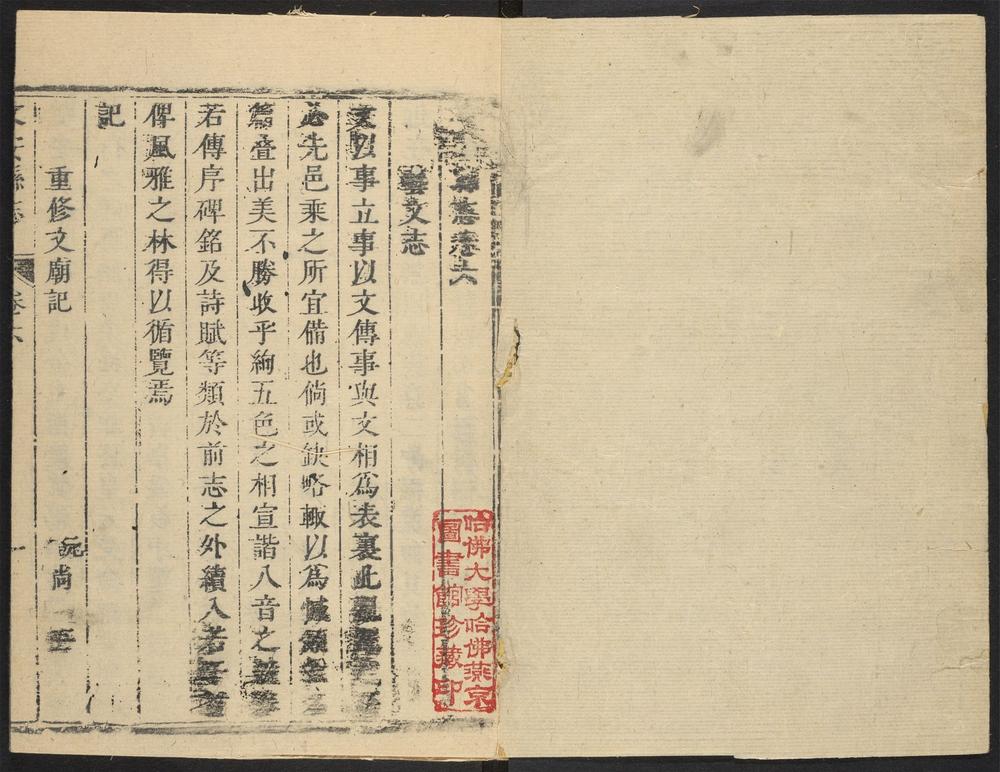 志卷六
藝文志
文以事立事以文傳事與文相爲表裏此
必先邑乘之所宜備也倘或缺略輙以爲憾
叠出美不勝收乎絢五色之相宣諧八音之
若傳序碑銘及詩賦等類於前志之外續入若
俾風雅之林得以循覽焉
記
重修文廟記 阮尚
縣志 卷六 一
哈佛大學哈佛燕京
圖書館珍藏印